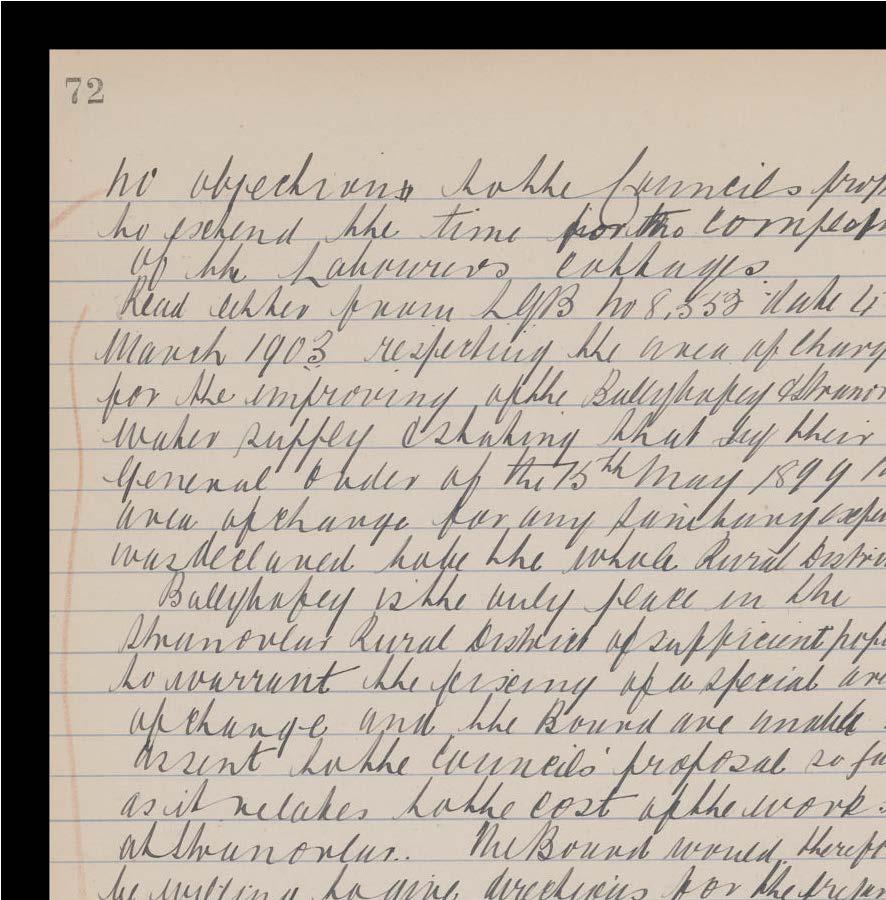 72
no objections to the Councils prop
to extend the time for the complet
of the Labourers cottages
Read letter from LGB No 8,553 date 4
March 1903 respecting the area of Charg
for the improving of the Ballybofey & Stranor
water supply & stating that by their
General Order of the 15th May 1899 th
area of charge for any sanitary expe
was declared to be the whole Rural Distric
Ballybofey is the only place in the
Stranorlar Rural District of sufficient pop
to warrant the fixing of a special are
of charge and the Board are unable
assent to the Councils' proposal so fa
as it relates to the cost of the work.
at Stranorlar. The Board would therefo
be willing to give directions for the prepar